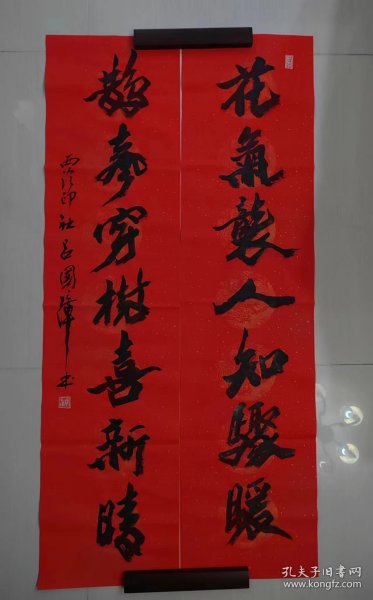 花氣襲人知驟暖
鹊聲穿樹喜新晴
西泠印社吕國璋書
孔夫子旧书网
www.kongfz.com